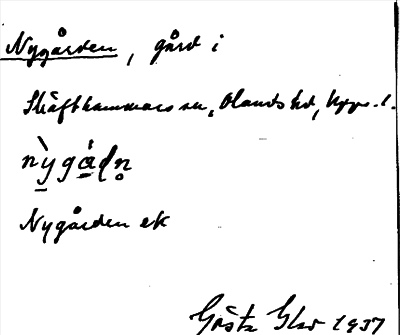 Nygården, gård i
Skäfthammars sn, Olands hd, Upps. l.
nỳgáḍn̥
Nygården ek
Gösta
1937